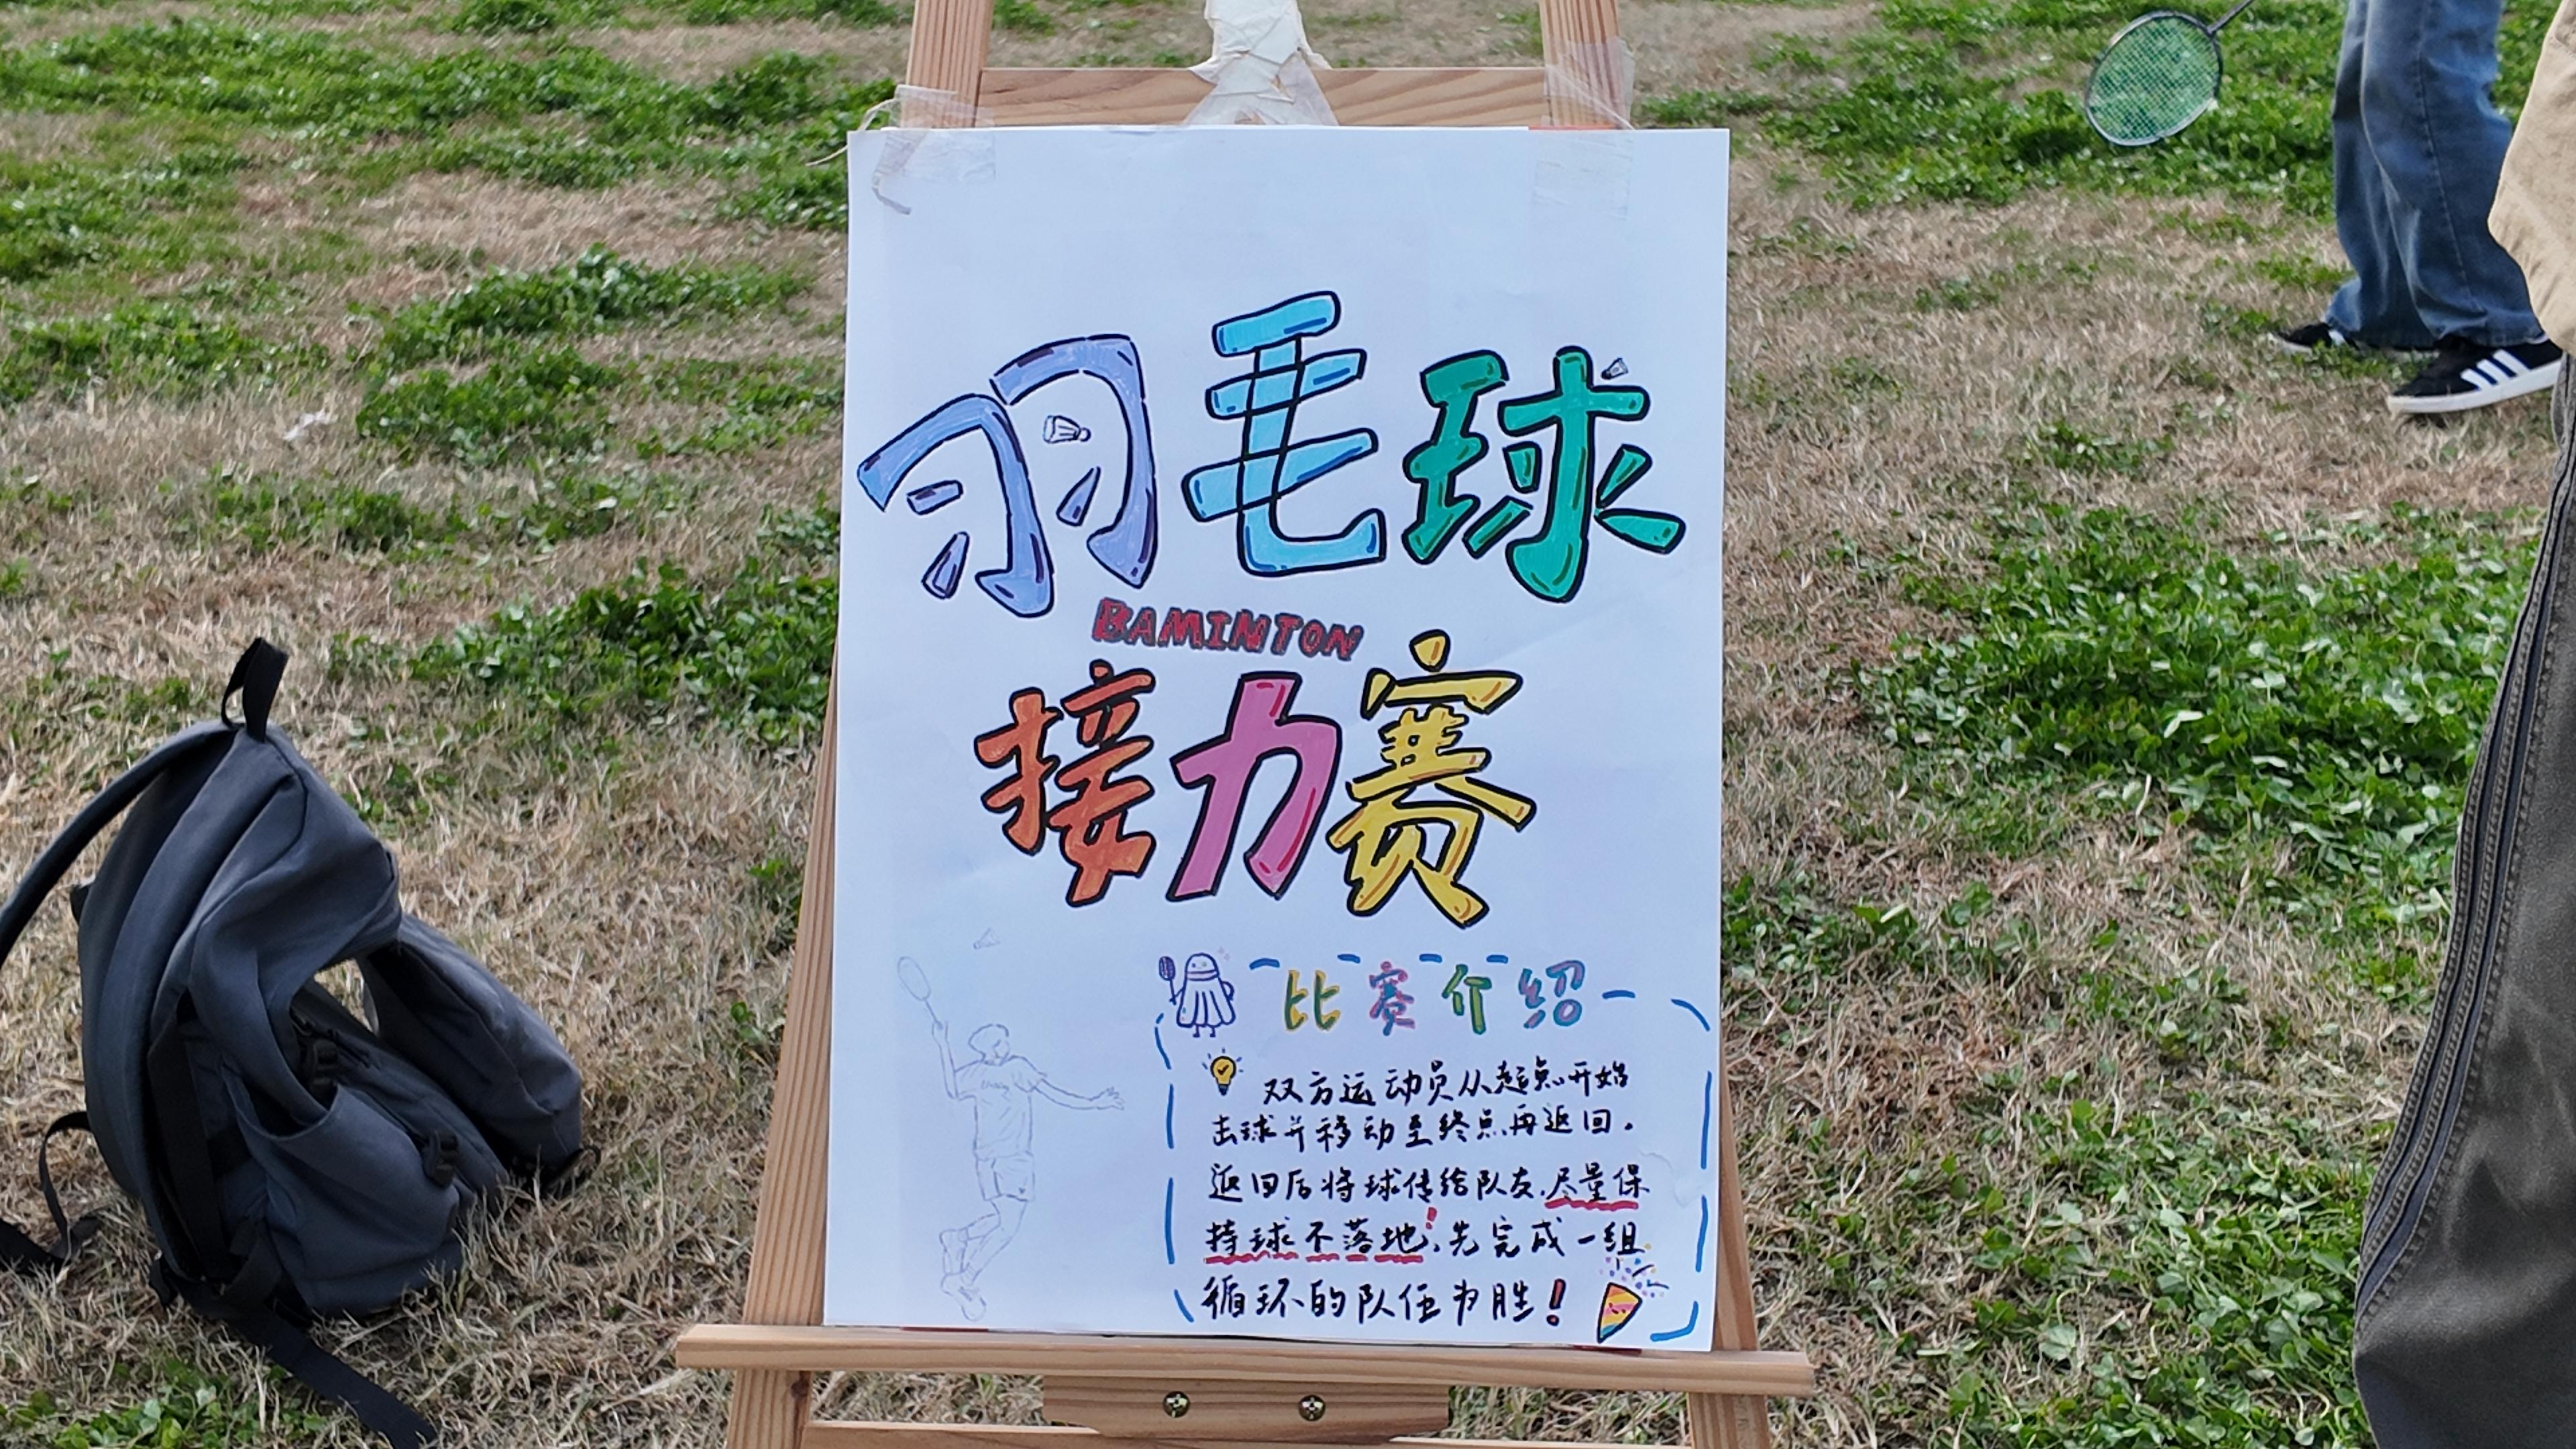 羽毛球
BAMINTON
接力赛
比赛介绍
双方运动员从起点开始
击球并移动至终点再返回。
返回后将球传给队友,尽量保
持球不落地!,先完成一组
循环的队伍为胜!